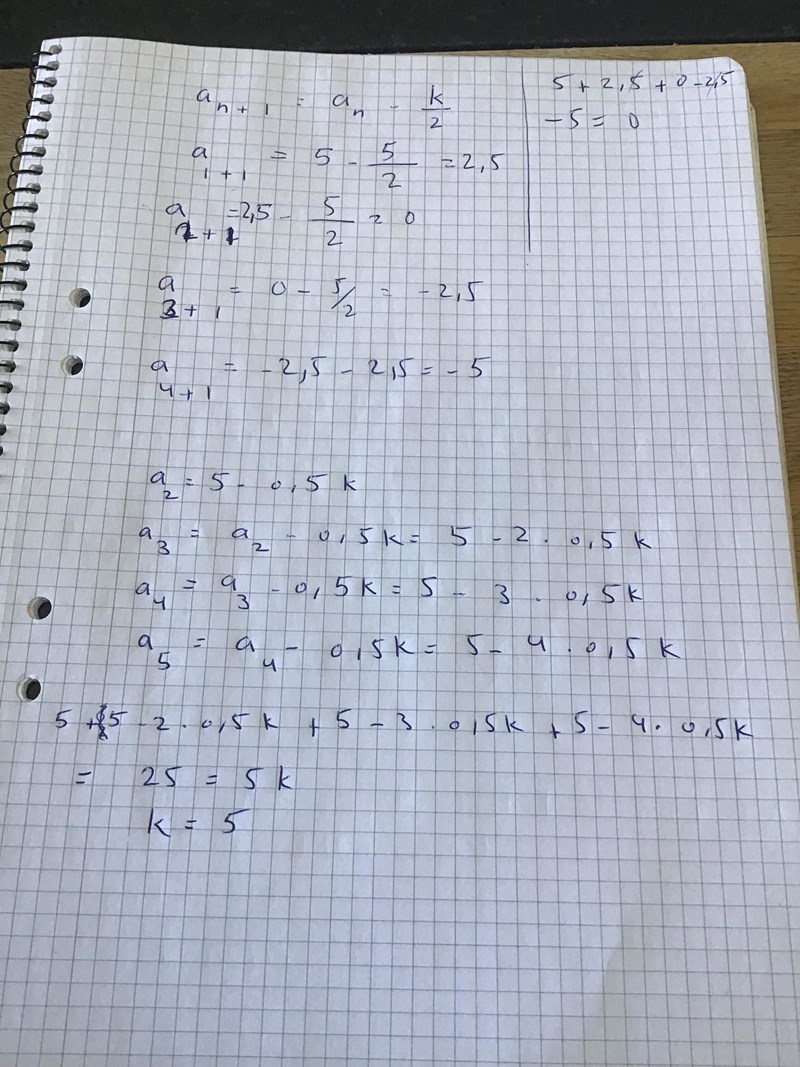 a_{n+1} = a_n - k/2
a_{1+1} = 5 - 5/2 = 2,5
a_{2+1} = 2,5 - 5/2 = 0
a_{3+1} = 0 - 5/2 = -2,5
a_{4+1} = -2,5 - 2,5 = -5
5 + 2,5 + 0 - 2,5
-5 = 0
a_2 = 5 - 0,5 k
a_3 = a_2 - 0,5k = 5 - 2 · 0,5 k
a_4 = a_3 - 0,5k = 5 - 3 · 0,5k
a_5 = a_4 - 0,5k = 5 - 4 · 0,5 k
5 + 5 - 2 · 0,5k + 5 - 3 · 0,5k + 5 - 4 · 0,5k
= 25 = 5k
k = 5